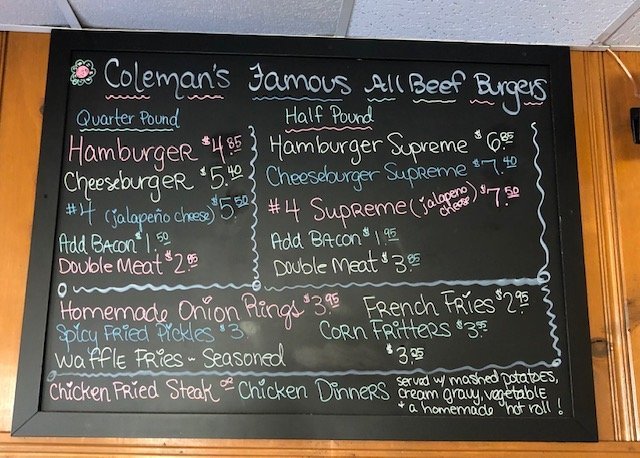 Coleman's Famous All Beef Burgers
Quarter Pound
Hamburger $4.85
Cheeseburger $5.40
#4 (jalapeño cheese) $5.50
Add Bacon $1.50
Double Meat $2.85
Half Pound
Hamburger Supreme $6.85
Cheeseburger Supreme $7.40
#4 Supreme (jalapeño cheese) $7.50
Add Bacon $1.95
Double Meat $3.85
Homemade Onion Rings $3.95 French Fries $2.95
Spicy Fried Pickles $3. Corn Fritters $3.
Waffle Fries - Seasoned $3.25
Chicken Fried Steak or Chicken Dinners served w/ mashed potatoes,
cream gravy, vegetable
+ a homemade hot roll!